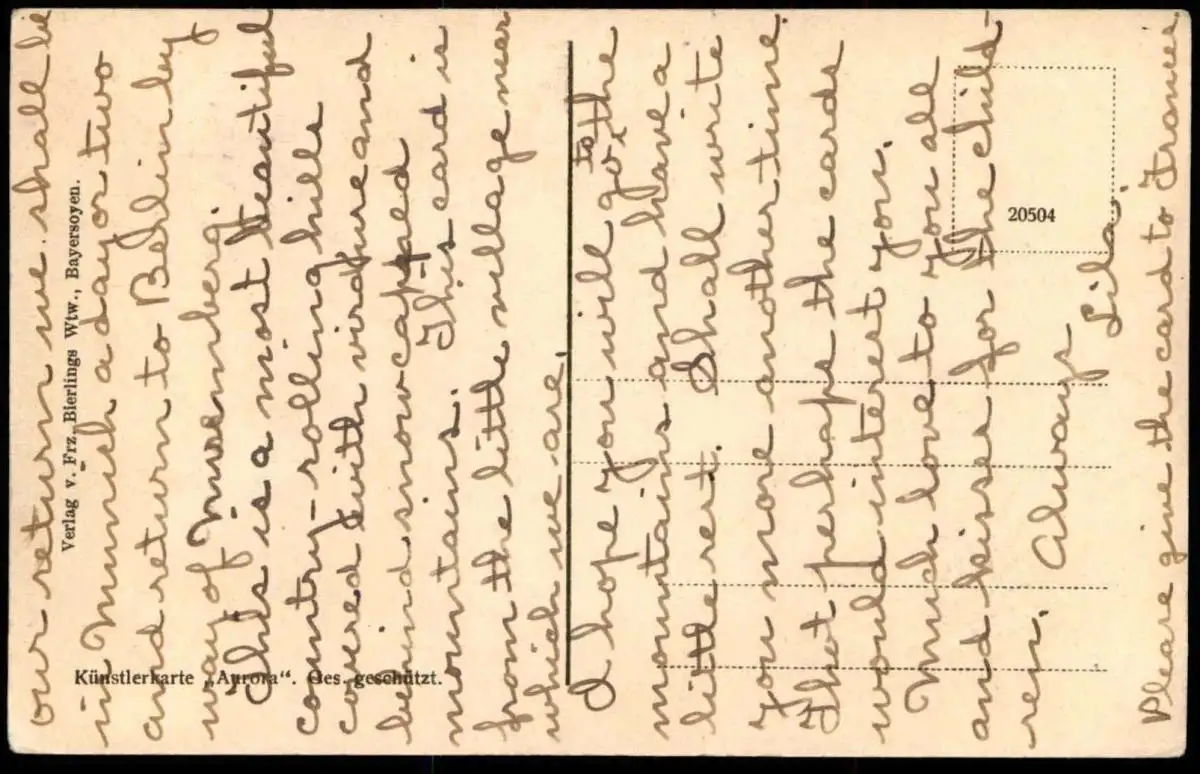 our return we shall be
in Munich a day or two
and return to Berlin by
way of Nuremberg.
This is a most beautiful
country - rolling hills
covered with verdure and
behind snow capped
mountains. This card is
from the little village near
which we are.
I hope you will go to the
mountains and have a
little rest. Shall write
you more another time
Thot perhaps the cards
would interest you.
Much love to you all
and kisses for the child-
ren. Always
Lila.
Please give the card to Frances
Verlag v. Frz. Bierlings Wtw., Bayersoyen.
Künstlerkarte „Aurora“. Ges. geschützt.
20504